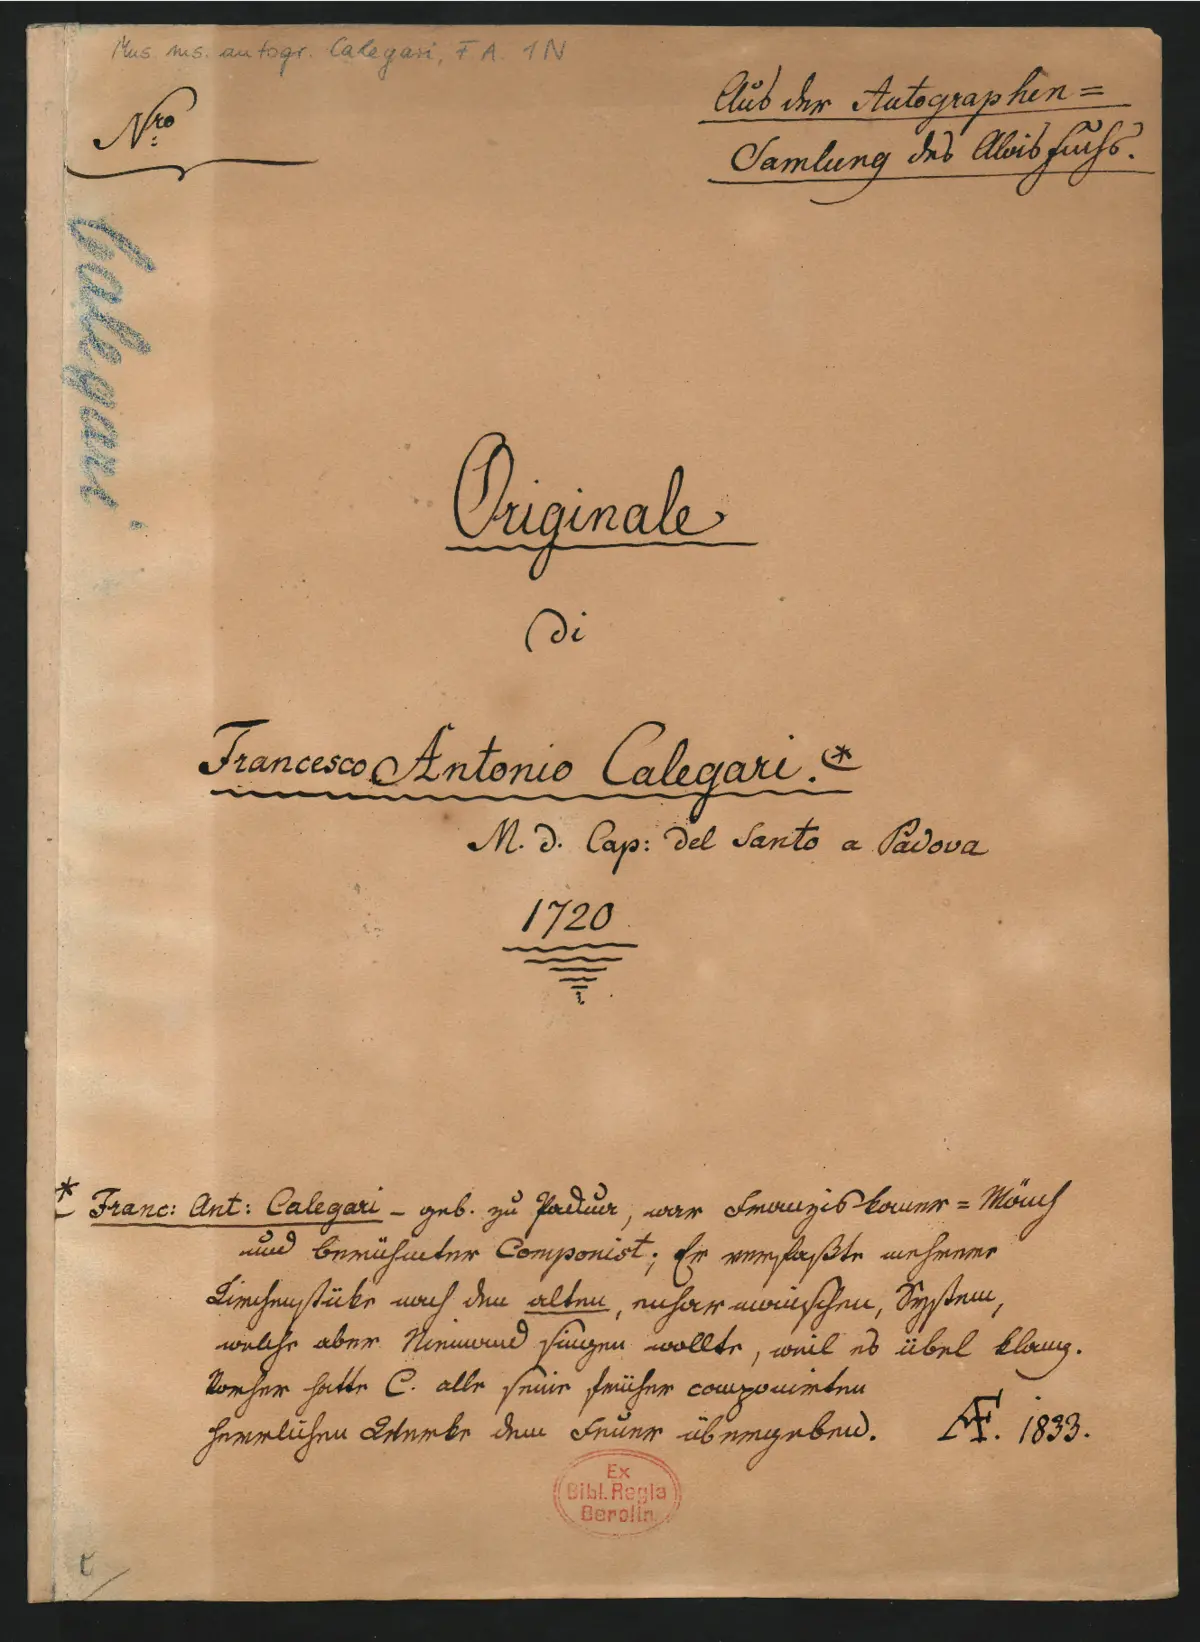 Mus. ms. autogr. Calegari, F A. 1 N
Nro
Aus der Autographen=
Samlung des Alois Fuchs.
Calegari
Originale
di
Francesco Antonio Calegari. *
M. d. Cap: del Santo a Padova
1720
* Franc: Ant: Calegari – geb. zu Padua, war Franziskaner=Mönch
und berühmter Componist; Er verfaßte mehrere
Kirchenstücke nach dem alten, enharmonischen, System,
welche aber Niemand singen wollte, weil es übel klang.
Vorher hatte C. alle seine früher componirten
herrlichen Werke dem Feuer übergeben. AF. 1833.
Ex
Bibl. Regia
Berolin.